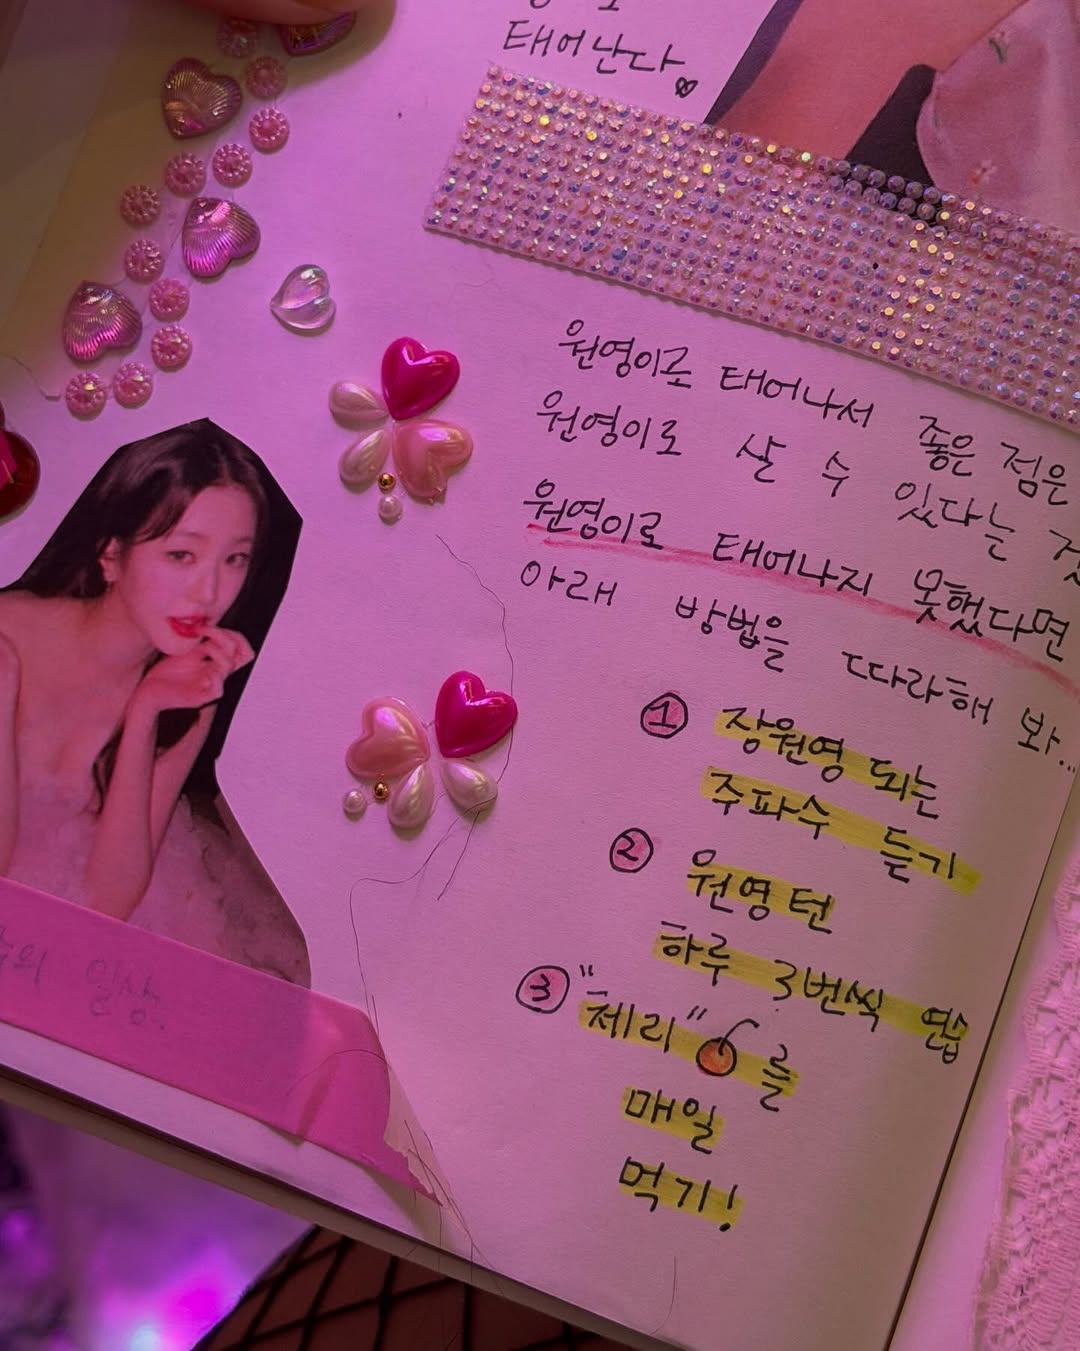 태어난다
원영이로 태어나서 좋은 점은
원영이로 살 수 있다는
원영이로 태어나지 못했다면
아래 방법을 따라해 봐...
① 장원영 되는
주파수 듣기
② 원영턴
하루 3번씩 연습
③ "체리" 를
매일
먹기!
일상.